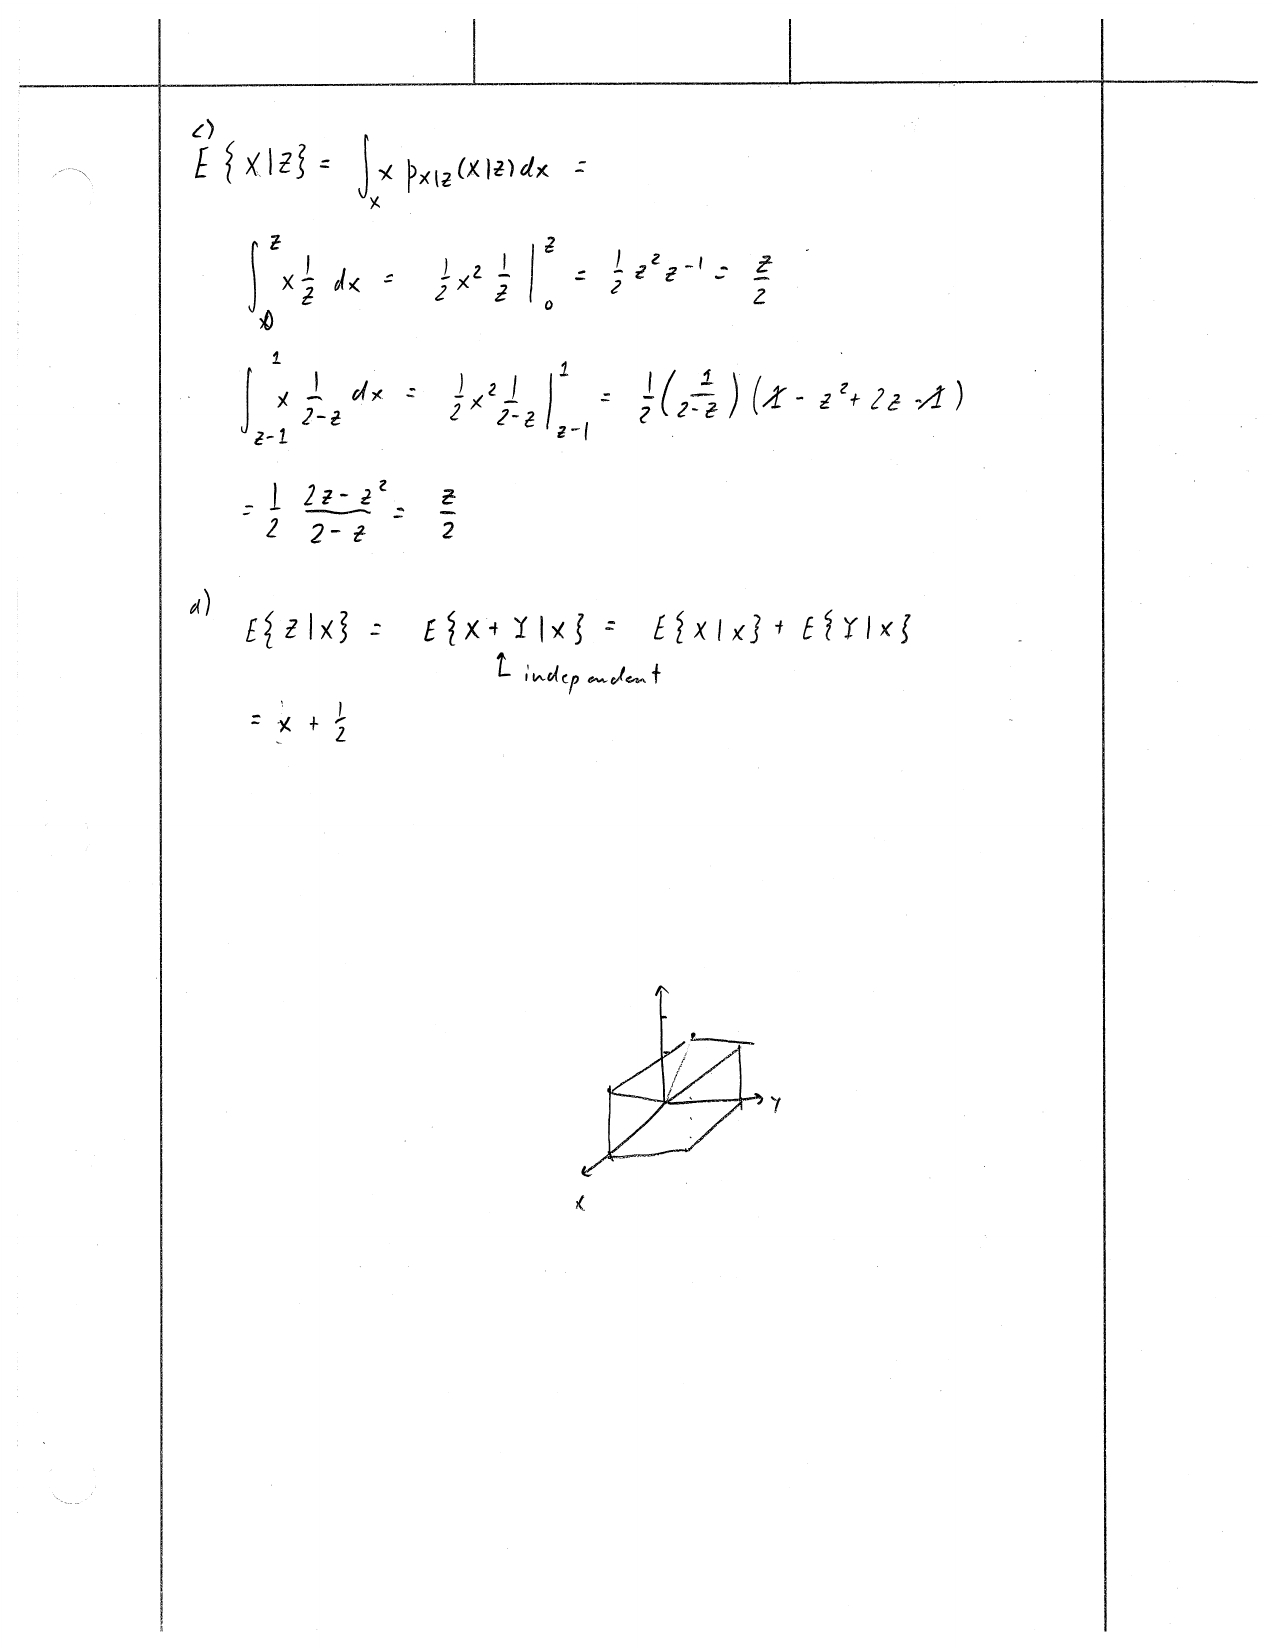 c)
E { X | z } = ∫_x x p_{X|Z} (X|z) dx =
∫_0^z x 1/z dx = 1/2 x² 1/z |_0^z = 1/2 z² z⁻¹ = z/2
∫_{z-1}^1 x 1/(2-z) dx = 1/2 x² 1/(2-z) |_{z-1}^1 = 1/2 (1/(2-z)) (1 - z² + 2z - 1)
= 1/2 (2z - z²)/(2 - z) = z/2
d)
E{ Z | x } = E{ X + Y | x } = E{ X | x } + E{ Y | x }
↑ independent
= x + 1/2
Y
X